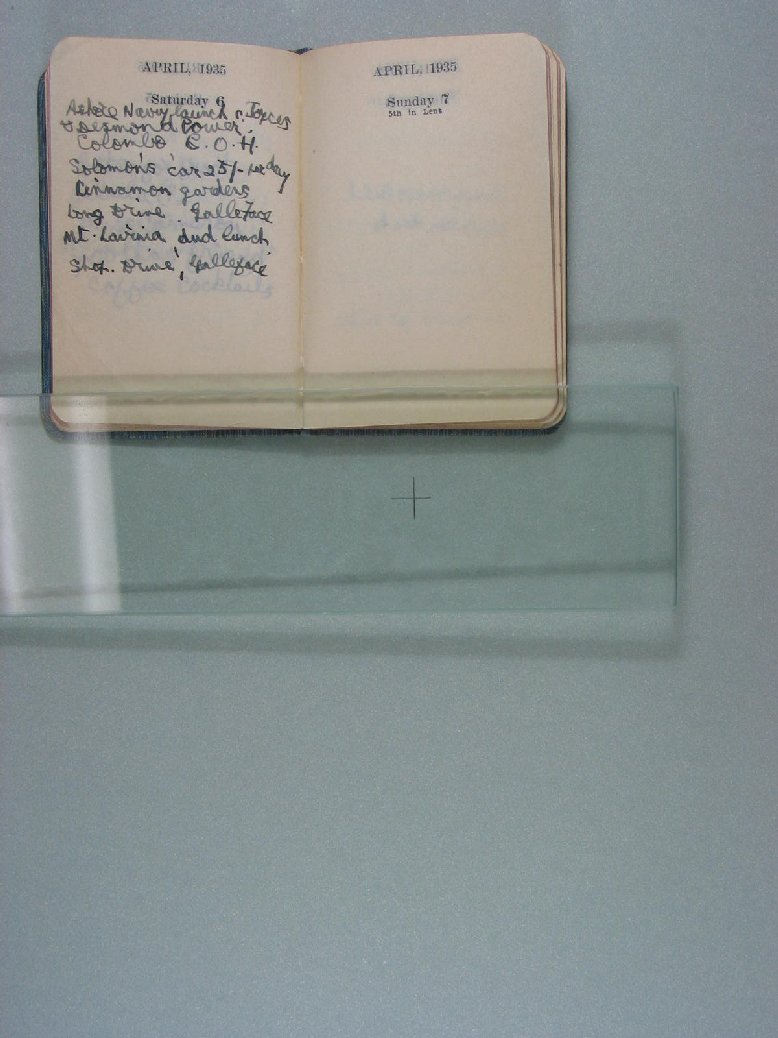 APRIL, 1935
Saturday 6
Ashore Navy launch c. Joyces
& Desmond Power.
Colombo G. O. H.
Solomon's car 25/- per day
Cinnamon gardens
Long Drive. Galleface
Mt. Lavinia and lunch
Shop. Drive, Galleface
Coffee Cocktails
APRIL, 1935
Sunday 7
5th in Lent